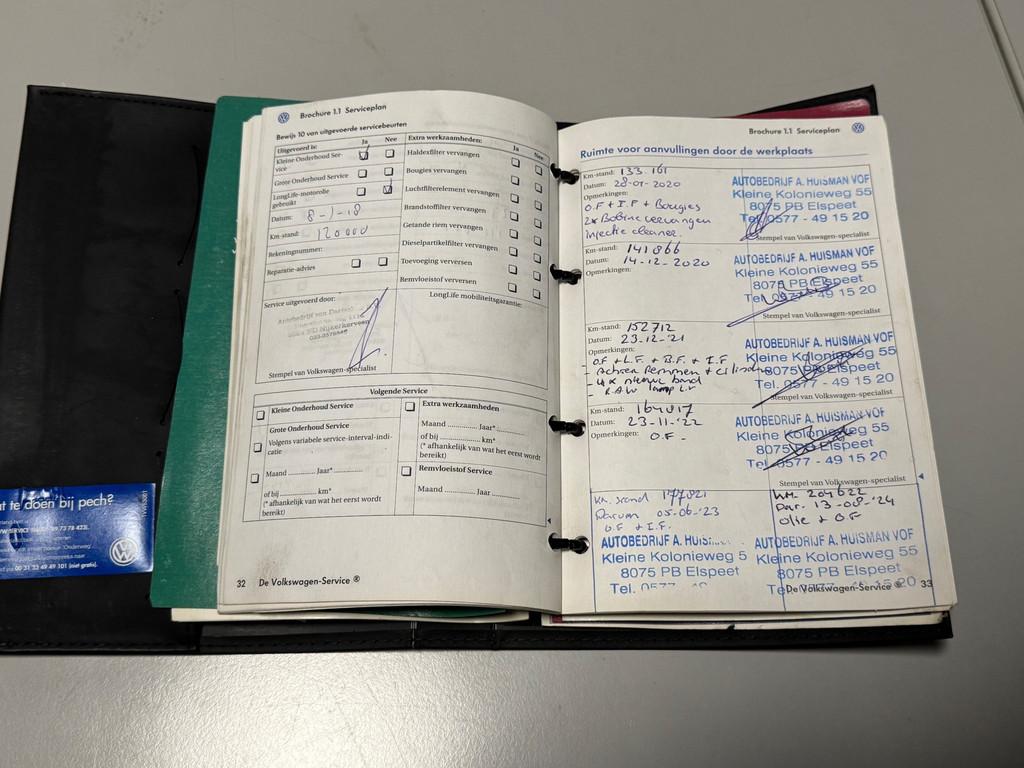 Brochure 1.1 Serviceplan
Bewijs 10 van uitgevoerde servicebeurten
Uitgevoerd is: Ja Nee
Kleine Onderhoud Ser-
vice
Grote Onderhoud Service
LongLife-motorolie
gebruikt
Datum: 8-1-18
Km-stand: 120000
Rekeningnummer:
Reparatie-advies
Extra werkzaamheden: Ja Nee
Haldexfilter vervangen
Bougies vervangen
Luchtfilterelement vervangen
Brandstoffilter vervangen
Getande riem vervangen
Dieselpartikelfilter vervangen
Toevoeging verversen
Remvloeistof verversen
Service uitgevoerd door:
Autobedrijf van
Nijkerkerveen
Stempel van Volkswagen-specialist
LongLife mobiliteitsgarantie:
Volgende Service
Kleine Onderhoud Service
Grote Onderhoud Service
Volgens variabele service-interval-indi-
catie
Maand ............ Jaar* ............
of bij ............ km*
(* afhankelijk van wat het eerst wordt
bereikt)
Extra werkzaamheden
Maand ............ Jaar* ............
of bij ............ km*
(* afhankelijk van wat het eerst wordt
bereikt)
Remvloeistof Service
Maand ............ Jaar ............
32 De Volkswagen-Service ®
Brochure 1.1 Serviceplan
Ruimte voor aanvullingen door de werkplaats
Km-stand: 133.161
Datum: 28-01-2020
Opmerkingen:
O.F + I.F + Bougies
2x Bobine vervangen
injectie cleaner.
AUTOBEDRIJF A. HUISMAN VOF
Kleine Kolonieweg 55
8075 PB Elspeet
Tel. 0577 - 49 15 20
Stempel van Volkswagen-specialist
Km-stand: 141866
Datum: 14-12-2020
Opmerkingen:
AUTOBEDRIJF A. HUISMAN VOF
Kleine Kolonieweg 55
8075 PB Elspeet
Tel. 0577 - 49 15 20
Stempel van Volkswagen-specialist
Km-stand: 152712
Datum: 23-12-'21
Opmerkingen:
O.F + L.F. + B.F. + I.F
- Achter Remmen +
- 4x nieuwe band
AUTOBEDRIJF A. HUISMAN VOF
Kleine Kolonieweg 55
8075 PB Elspeet
Tel. 0577 - 49 15 20
Stempel van Volkswagen-specialist
Km-stand: 164817
Datum: 23-11-'22
Opmerkingen: O.F -
AUTOBEDRIJF A. HUISMAN VOF
Kleine Kolonieweg 55
8075 PB Elspeet
Tel. 0577 - 49 15 20
Stempel van Volkswagen-specialist
Km. stand 177821
Datum 05-06-'23
O.F + I.F.
AUTOBEDRIJF A. HUIS
Kleine Kolonieweg 5
8075 PB Elspeet
Tel. 0577
KM. 204622
Dat. 13-08-'24
Olie + O.F
AUTOBEDRIJF A. HUISMAN VOF
Kleine Kolonieweg 55
8075 PB Elspeet
De Volkswagen-Service ® 33
at te doen bij pech?
00 31 33 49 49 101 (niet gratis).